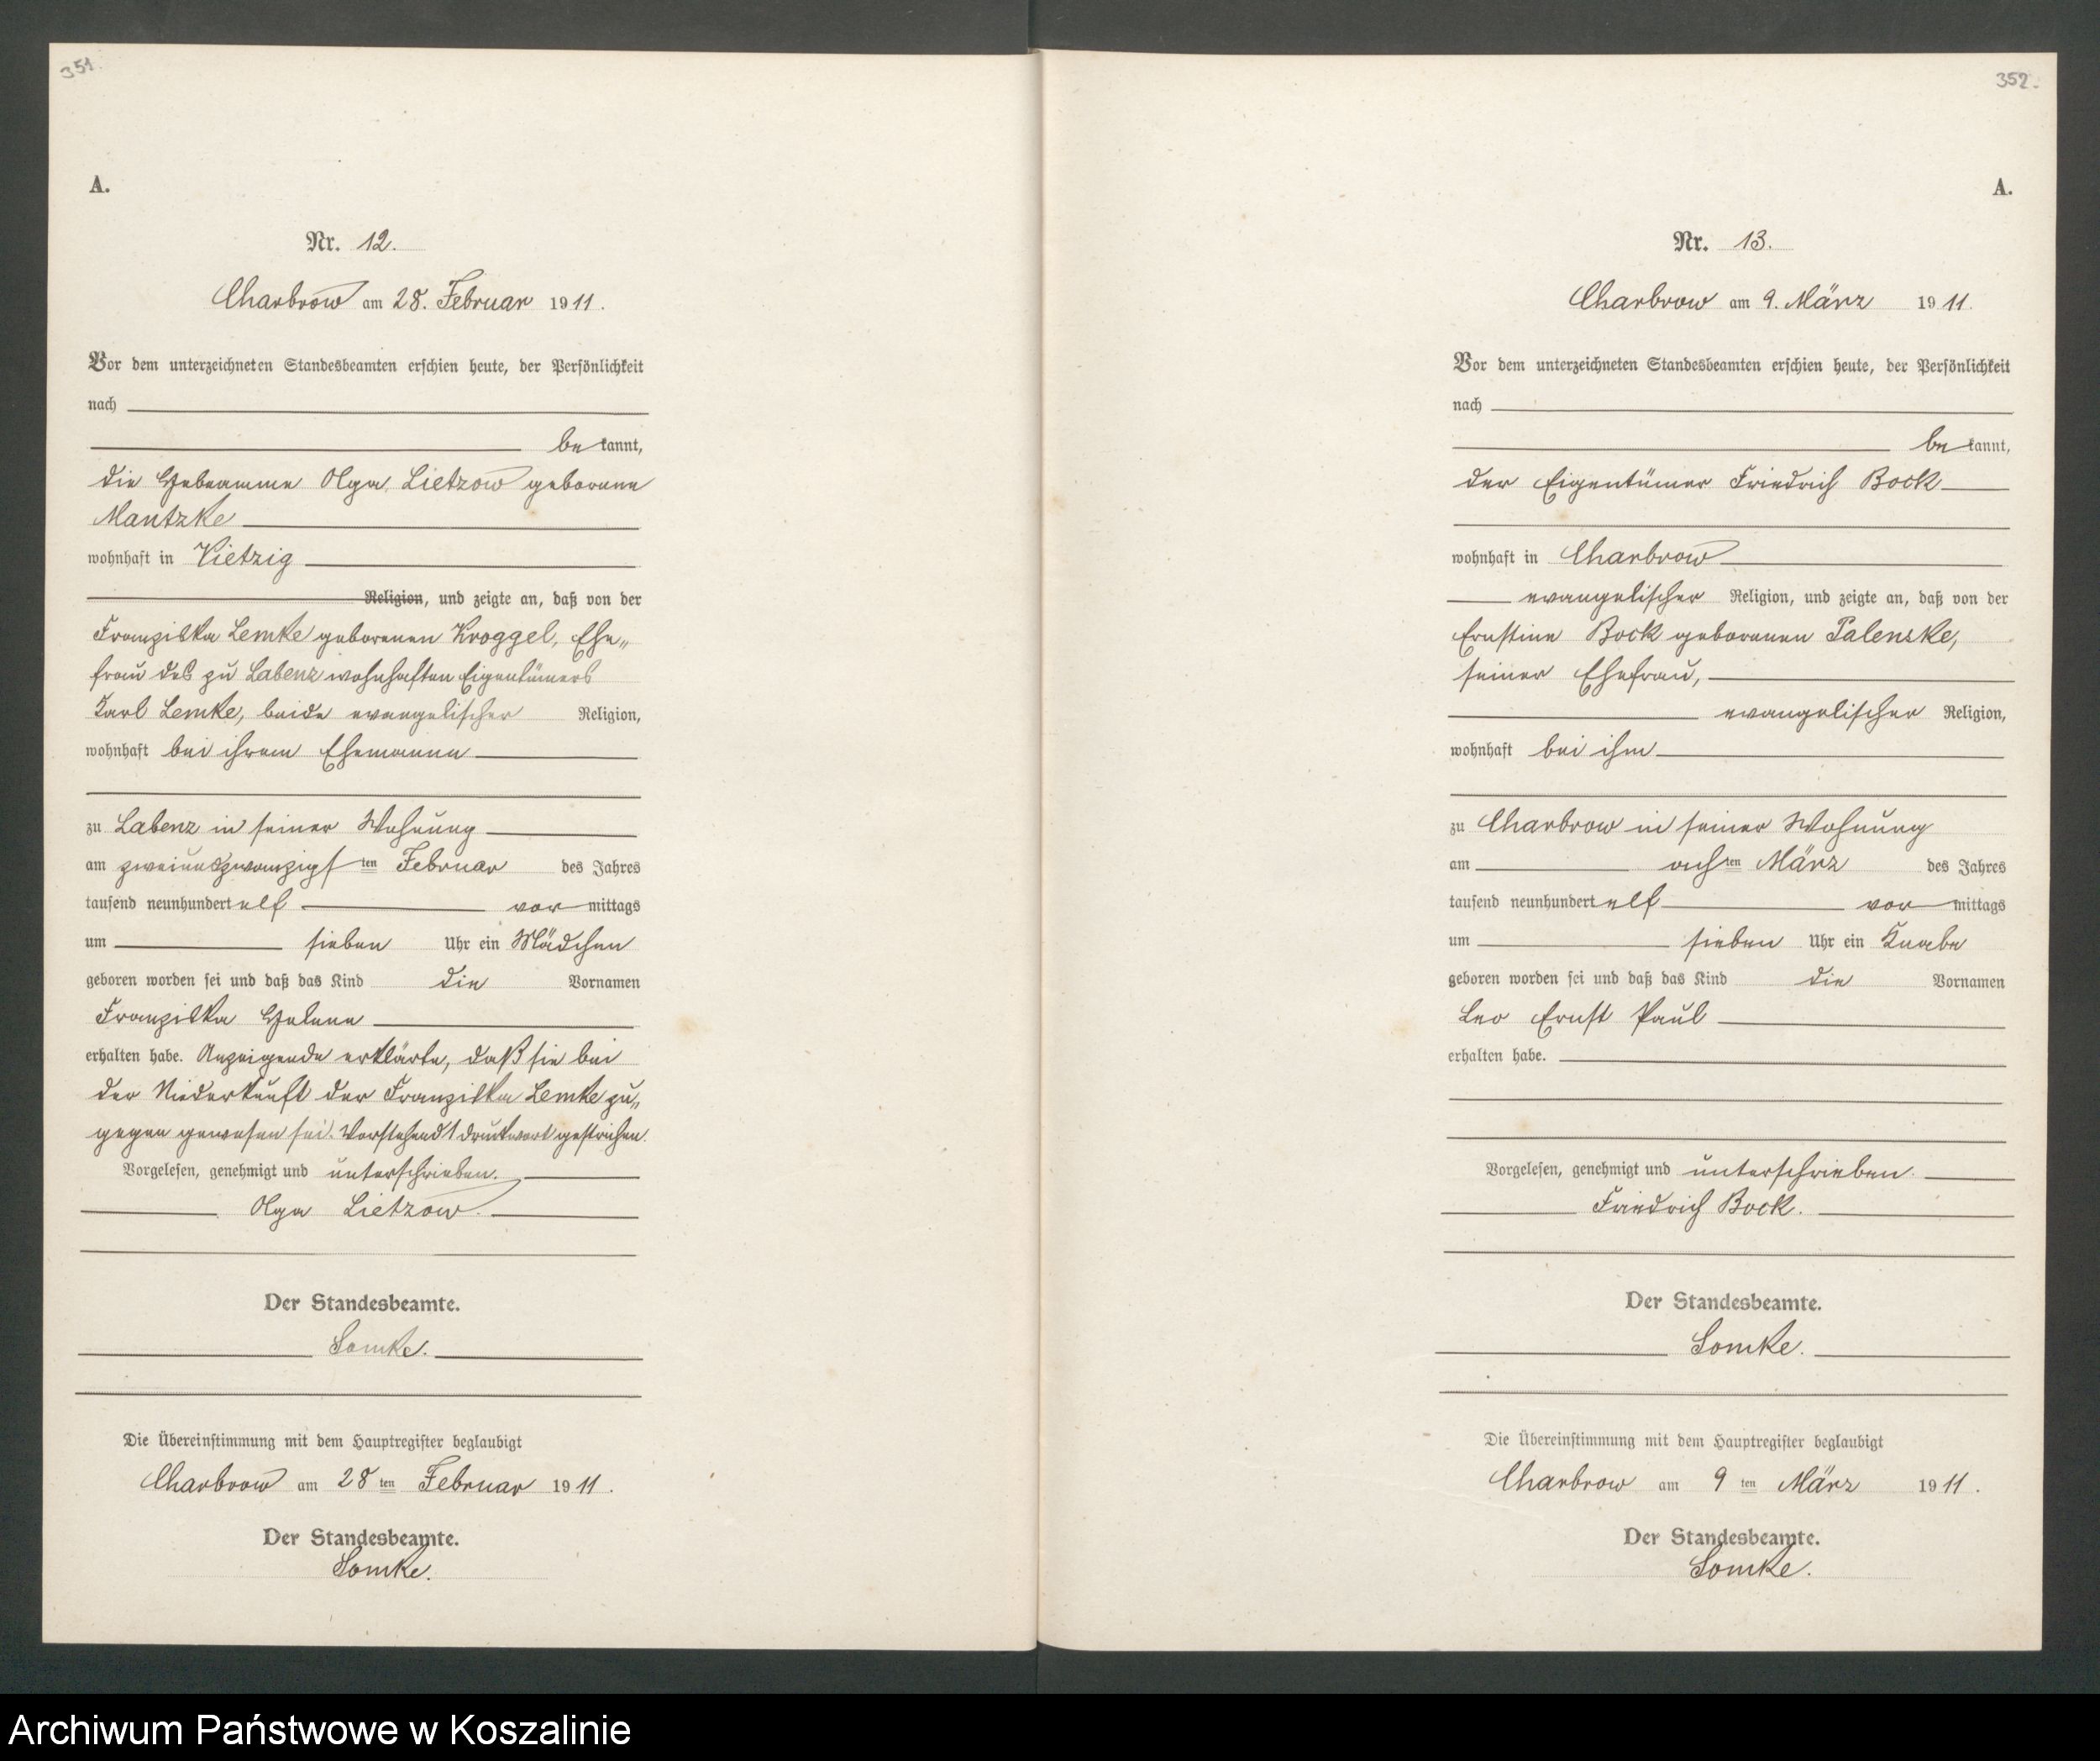 351.
A.
Nr. 12.
Charbrow am 28. Februar 1911.
Vor dem unterzeichneten Standesbeamten erschien heute, der Persönlichkeit
nach
bekannt,
die Hebeamme Olga Lietzow geborene
Mantzke
wohnhaft in Vietzig
Religion, und zeigte an, daß von der
Franziska Lemke geborenen Kroggel, Ehe„
frau des zu Labenz wohnhaften Eigentümers
Karl Lemke, beide evangelischer Religion,
wohnhaft bei ihrem Ehemanne
zu Labenz in seiner Wohnung
am zweiundzwanzigsten Februar des Jahres
tausend neunhundert elf vormittags
um sieben Uhr ein Mädchen
geboren worden sei und daß das Kind die Vornamen
Franziska Helene
erhalten habe. Anzeigende erklärte, daß sie bei
der Niederkunft der Franziska Lemke zu„
gegen gewesen sei. Vorstehend 1 Druckwort gestrichen.
Vorgelesen, genehmigt und unterschrieben.
Olga Lietzow.
Der Standesbeamte.
Lomke.
Die Übereinstimmung mit dem Hauptregister beglaubigt
Charbrow am 28ten Februar 1911.
Der Standesbeamte.
Lomke.
352.
A.
Nr. 13.
Charbrow am 9. März 1911.
Vor dem unterzeichneten Standesbeamten erschien heute, der Persönlichkeit
nach
bekannt,
der Eigentümer Friedrich Bock
wohnhaft in Charbrow
evangelischer Religion, und zeigte an, daß von der
Ernstine Bock geborenen Palenske,
seiner Ehefrau,
evangelischer Religion,
wohnhaft bei ihm
zu Charbrow in seiner Wohnung
am achten März des Jahres
tausend neunhundert elf vormittags
um sieben Uhr ein Knabe
geboren worden sei und daß das Kind die Vornamen
Leo Ernst Paul
erhalten habe.
Vorgelesen, genehmigt und unterschrieben.
Friedrich Bock.
Der Standesbeamte.
Lomke.
Die Übereinstimmung mit dem Hauptregister beglaubigt
Charbrow am 9ten März 1911.
Der Standesbeamte.
Lomke.
Archiwum Państwowe w Koszalinie